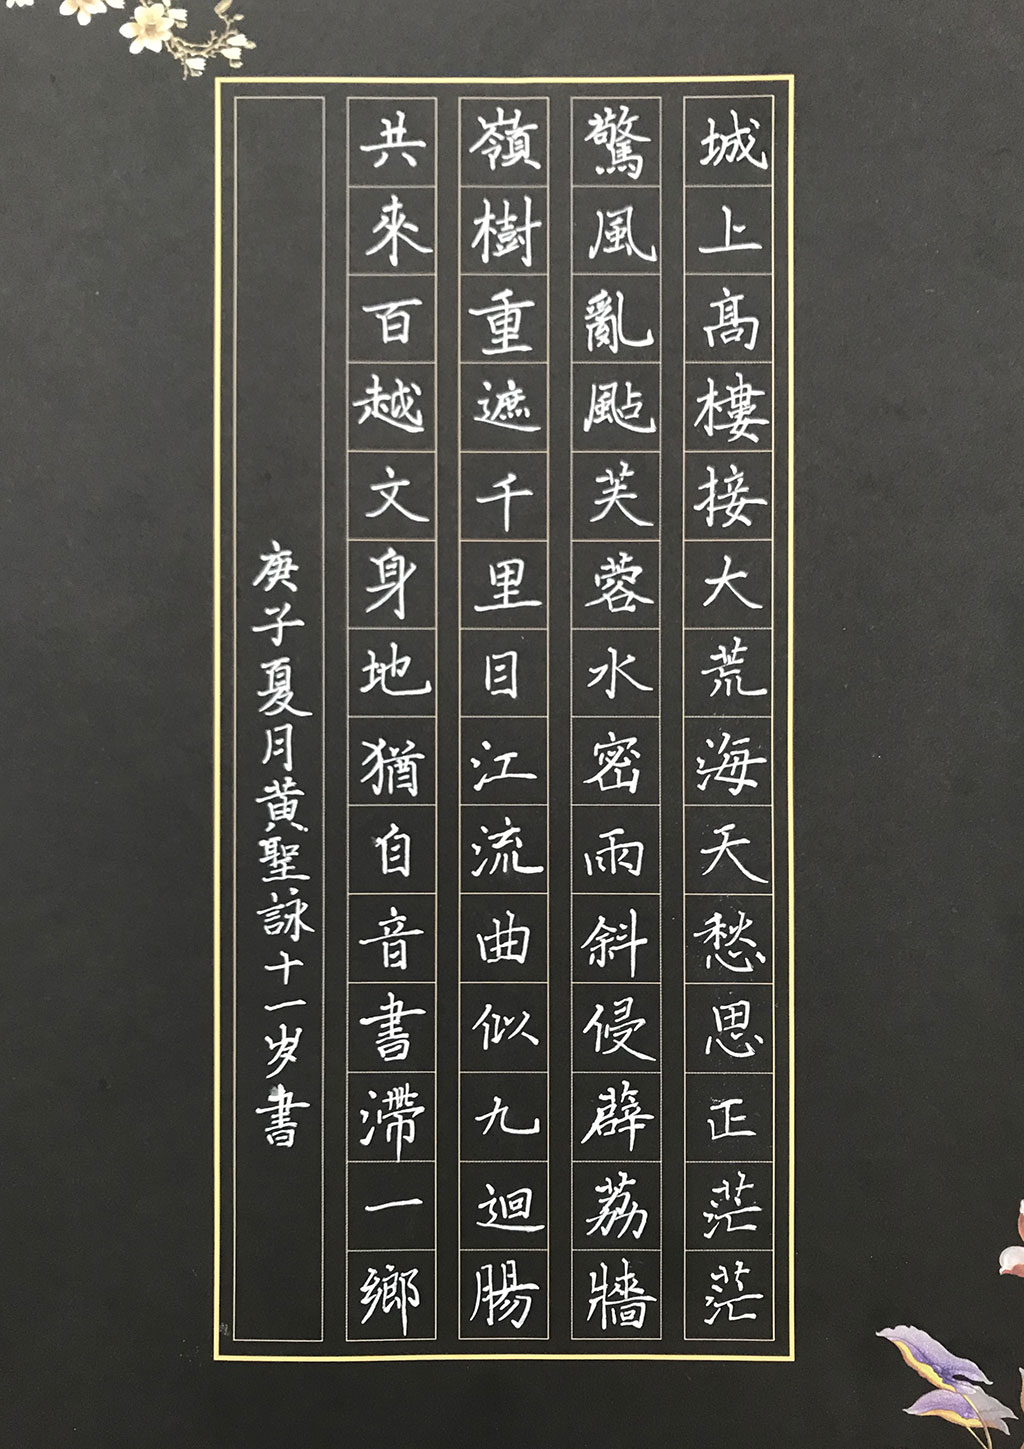 城上高樓接大荒海天愁思正茫茫
驚風亂颭芙蓉水密雨斜侵薜荔牆
嶺樹重遮千里目江流曲似九迴腸
共來百越文身地猶自音書滯一鄉
庚子夏月黃聖詠十一岁書